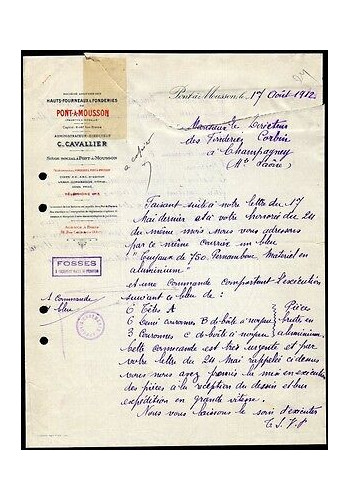 SOCIÉTÉ ANONYME DES
HAUTS-FOURNEAUX & FONDERIES
DE
PONT-A-MOUSSON
ADMINISTRATEUR-DIRECTEUR
C. CAVALLIER
SIÈGE SOCIAL À PONT-À-MOUSSON
TÉLÉPHONE
Pont-à-Mousson, le 17 Août 1912
Monsieur le Directeur
des Fonderies Corbin
à Champagney
Hte Saône
à copier
Faisant suite à notre lettre du 17
Mai dernier et à votre honorée du 24
du même mois nous vous adressons
par ce même courrier un bleu
"Tuyaux de 750 Pernambouc Matériel en
aluminium"
et une commande comportant l'exécution
suivant ce bleu de :
6 Têtes A
6 Demi couronnes B de boîte à noyau
3 Couronnes C de boîte à noyau
Pièces
brutes en
aluminium
FOSSES
1 Commande
1 bleu
Cette commande est très urgente et par
votre lettre du 24 Mai rappelé ci dessus
vous nous avez promis la mise en exécution
des pièces à la réception du dessin et leur
expédition en grande vitesse.
Nous vous laissons le soin d'exécuter
T. S. V. P.